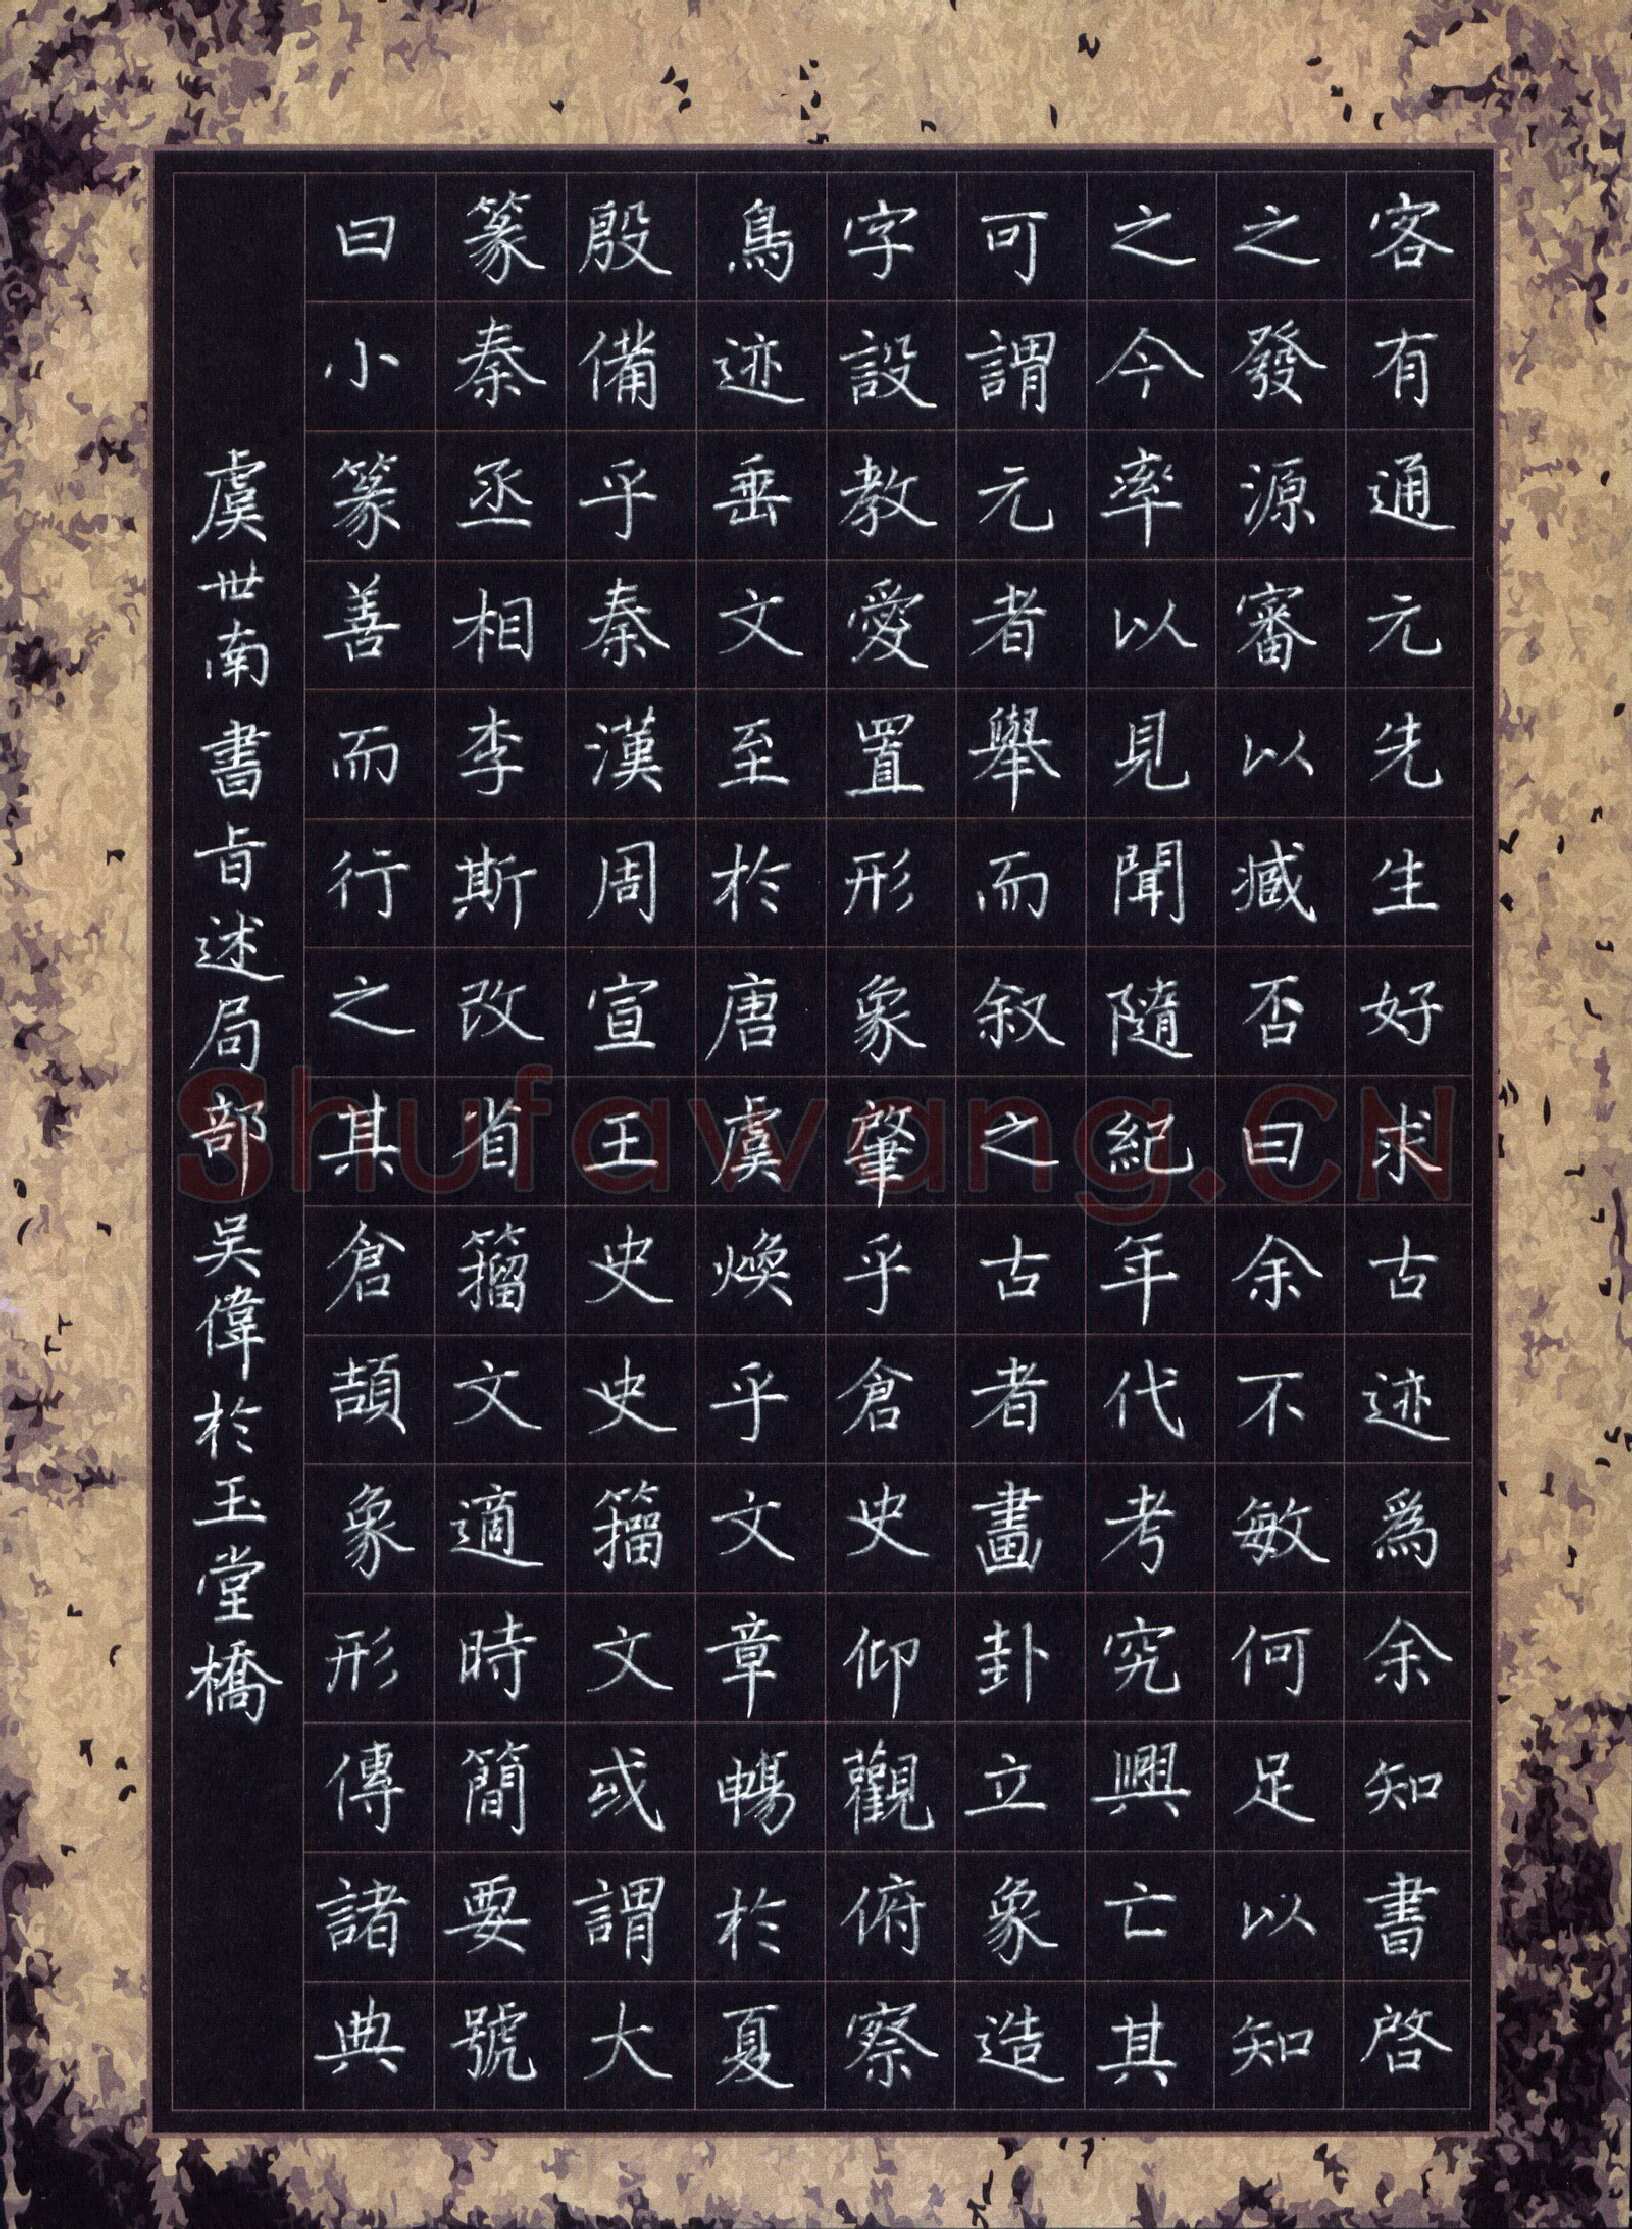 客有通元先生好求古迹爲余知書啓
之發源審以臧否曰余不敏何足以知
之今率以見聞隨紀年代考究興亡其
可謂元者舉而叙之古者畫卦立象造
字設教爰置形象肇乎倉史仰觀俯察
鳥迹垂文至於唐虞煥乎文章暢於夏
殷備乎秦漢周宣王史史籕文或謂大
篆秦丞相李斯改省籀文適時簡要號
曰小篆善而行之其倉頡象形傳諸典
虞世南書旨述局部吴偉於玉堂橋
Shufawang.CN